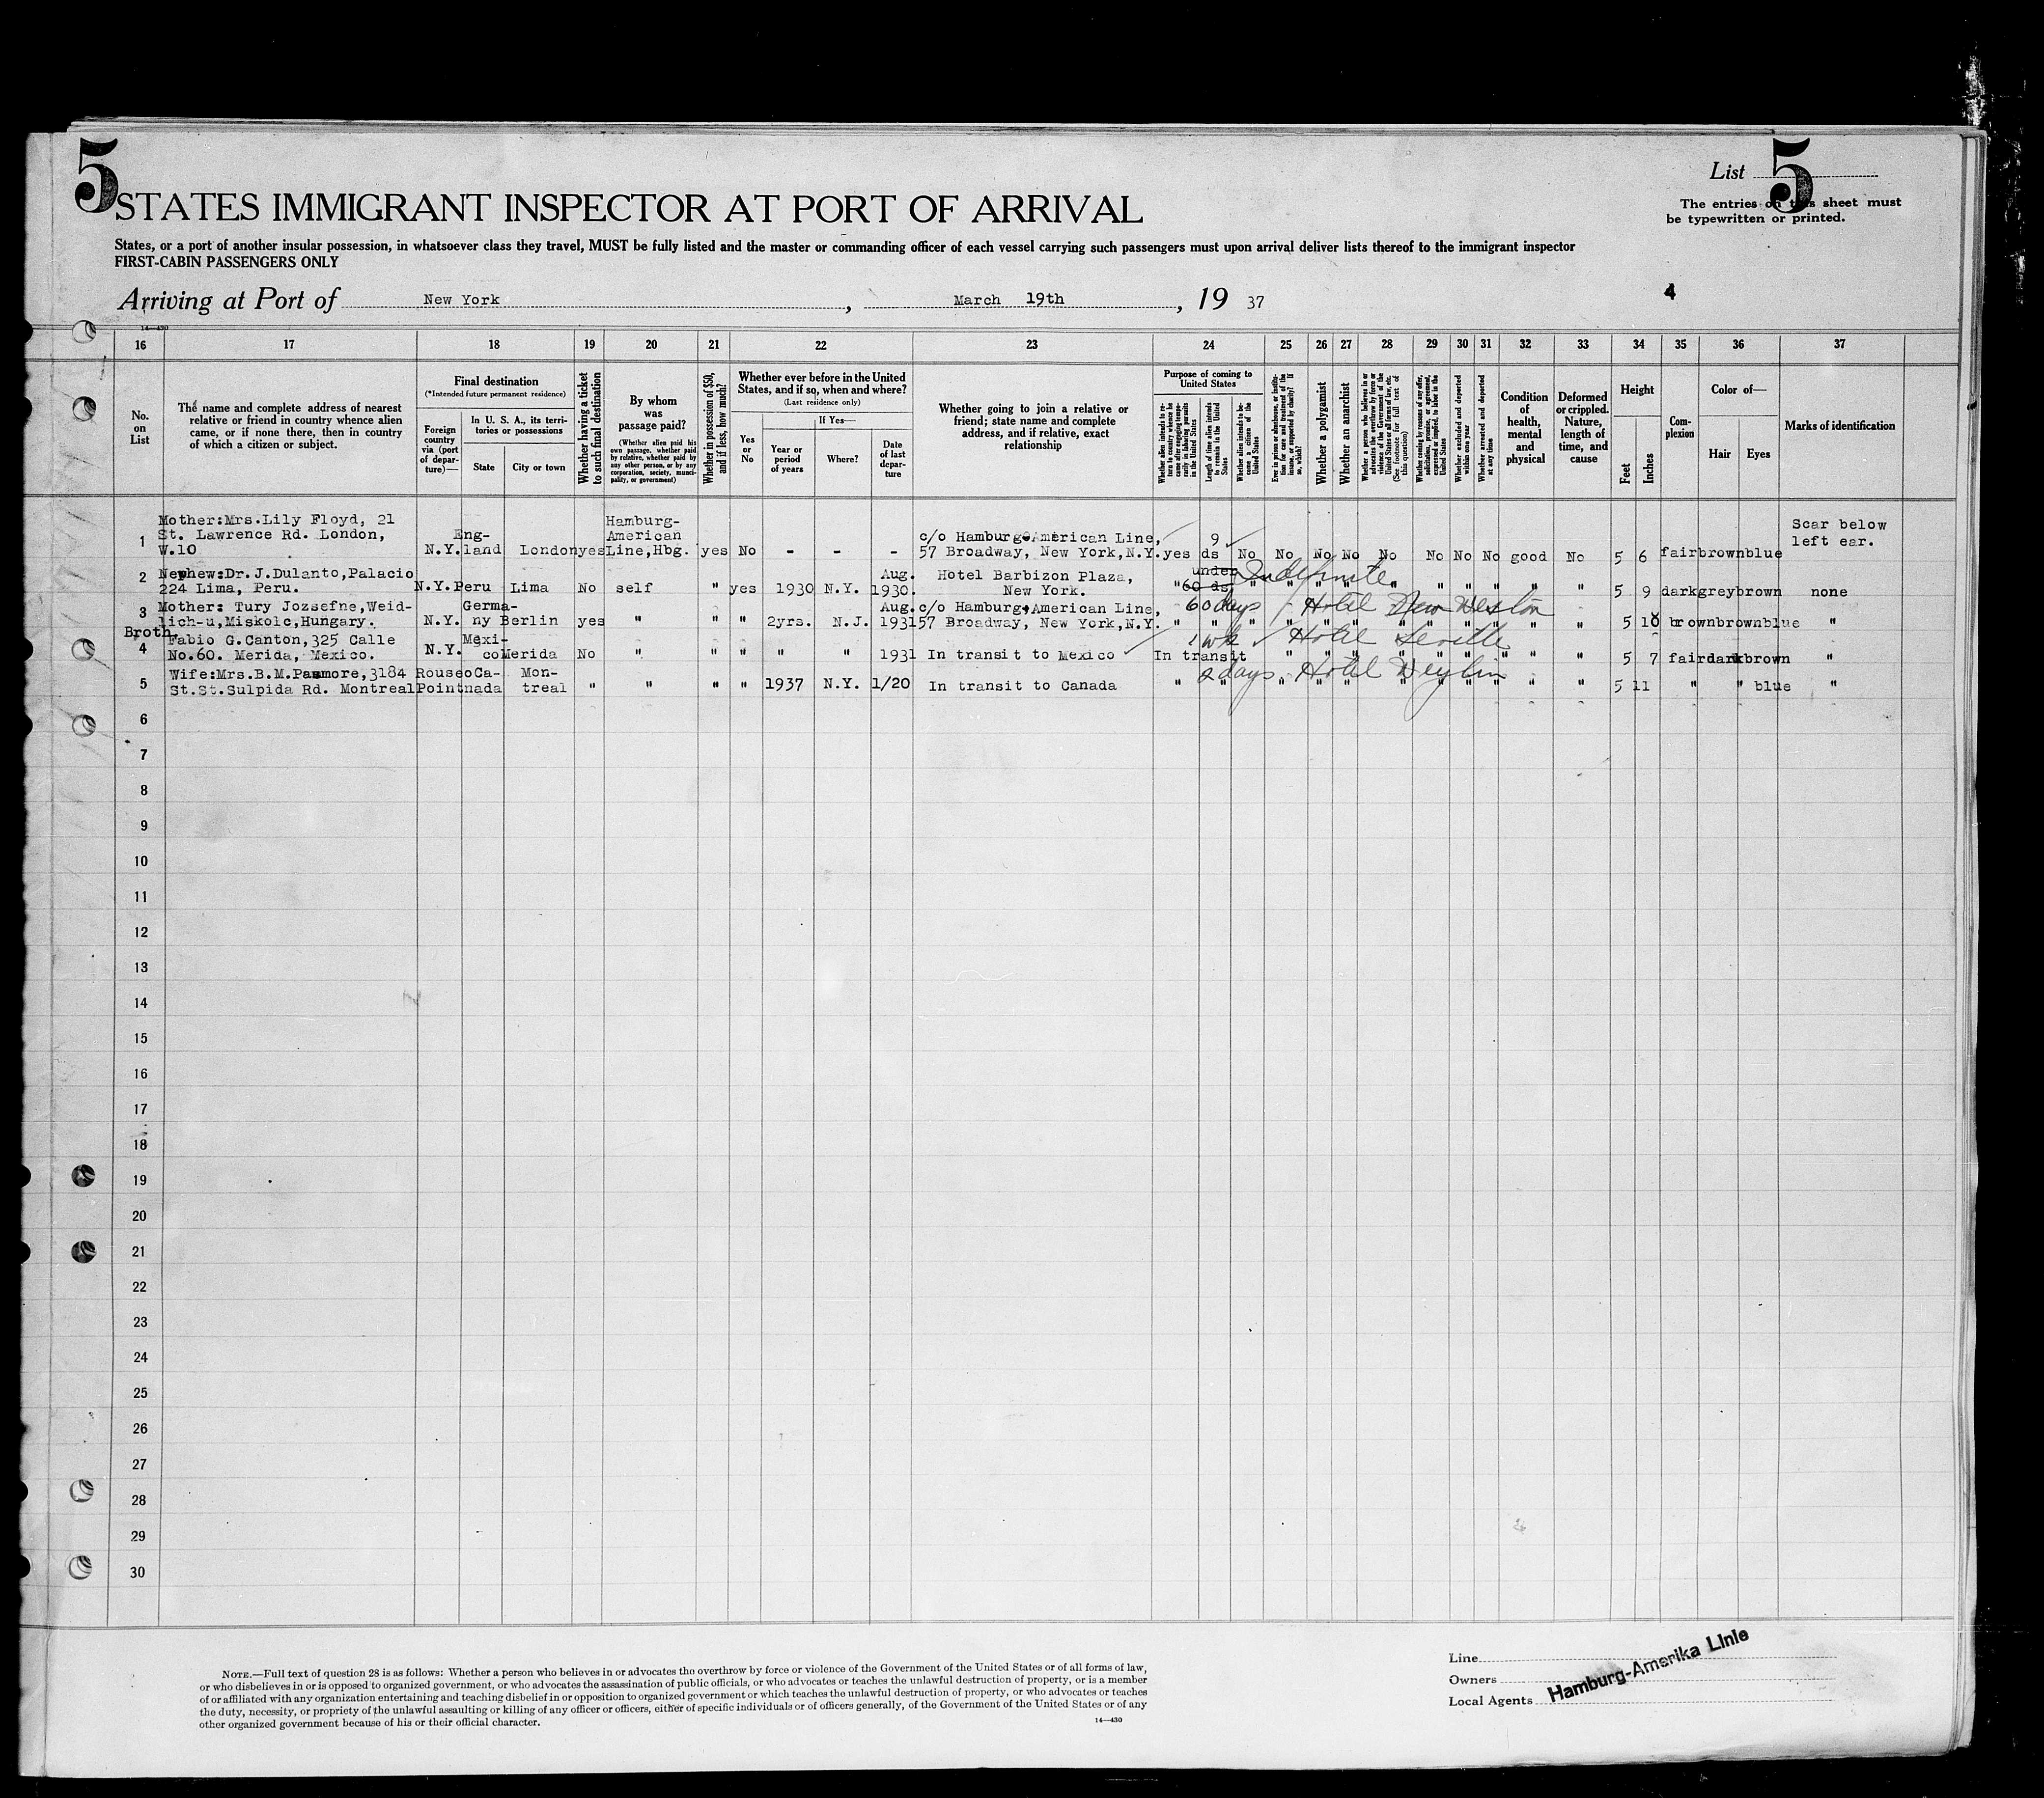 5
List 5
STATES IMMIGRANT INSPECTOR AT PORT OF ARRIVAL
The entries on this sheet must
be typewritten or printed.
States, or a port of another insular possession, in whatsoever class they travel, MUST be fully listed and the master or commanding officer of each vessel carrying such passengers must upon arrival deliver lists thereof to the immigrant inspector
FIRST-CABIN PASSENGERS ONLY
Arriving at Port of New York, March 19th, 19 37
4
14—430
16 17 18 19 20 21 22 23 24 25 26 27 28 29 30 31 32 33 34 35 36 37
No. on List
The name and complete address of nearest
relative or friend in country whence alien
came, or if none there, then in country
of which a citizen or subject.
Final destination
(*Intended future permanent residence)
Foreign country via (port of departure)—
In U. S. A., its territories or possessions
State
City or town
Whether having a ticket to such final destination
By whom was passage paid?
(Whether alien paid his own passage, whether paid by relative, whether paid by any other person, or by any corporation, society, municipality, or government)
Whether in possession of $50, and if less, how much?
Whether ever before in the United
States, and if so, when and where?
(Last residence only)
Yes or No
If Yes—
Year or period of years
Where?
Date of last departure
Whether going to join a relative or
friend; state name and complete
address, and if relative, exact
relationship
Purpose of coming to United States
Whether alien intends to return to country whence he came after engaging temporarily in laboring pursuits in the United States
Length of time alien intends to remain in the United States
Whether alien intends to become a citizen of the United States
Ever in prison or almshouse, or institution for care and treatment of the insane, or supported by charity? If so, which?
Whether a polygamist
Whether an anarchist
Whether a person who believes in or advocates the overthrow by force or violence of the Government of the United States or all forms of law, etc. (See footnote for full text of this question)
Whether coming by reasons of any offer, solicitation, promise, or agreement, expressed or implied, to labor in the United States
Whether excluded and deported within one year
Whether arrested and deported at any time
Condition of health, mental and physical
Deformed or crippled. Nature, length of time, and cause
Height
Feet
Inches
Complexion
Color of—
Hair
Eyes
Marks of identification
1 Mother:Mrs.Lily Floyd, 21
St. Lawrence Rd. London,
W.10 N.Y. England London yes Hamburg-American Line,Hbg. yes No - - - c/o Hamburg-American Line,
57 Broadway, New York,N.Y. yes 9 ds No No No No No No No No good No 5 6 fair brown blue Scar below left ear.
2 Nephew:Dr.J.Dulanto,Palacio
224 Lima, Peru. N.Y. Peru Lima No self " yes 1930 N.Y. Aug. 1930. Hotel Barbizon Plaza,
New York. " under 60 ds Indefinite " " " " " " " " " 5 9 dark grey brown none
3 Mother: Tury Jozsefne,Weid-
lich-u,Miskolc,Hungary. N.Y. Germany Berlin yes " " " 2yrs. N.J. Aug. 1931 c/o Hamburg-American Line,
57 Broadway, New York,N.Y. " 60 days Hotel New Weston " " " " " " " " " 5 10 brown brown blue "
4 Broth. Fabio G.Canton,325 Calle
No.60. Merida, Mexico. N.Y. Mexico Merida No " " " " " 1931 In transit to Mexico In transit 1 wk Hotel Seville " " " " " " " " " 5 7 fair dark brown "
5 Wife:Mrs.B.M.Pasmore,3184
St.St.Sulpida Rd. Montreal Rouseo Point Canada Montreal " " " " 1937 N.Y. 1/20 In transit to Canada " 2 days Hotel Weylin " " " " " " " " " 5 11 " " blue "
6
7
8
9
10
11
12
13
14
15
16
17
18
19
20
21
22
23
24
25
26
27
28
29
30
NOTE.—Full text of question 28 is as follows: Whether a person who believes in or advocates the overthrow by force or violence of the Government of the United States or of all forms of law,
or who disbelieves in or is opposed to organized government, or who advocates the assassination of public officials, or who advocates or teaches the unlawful destruction of property, or is a member
of or affiliated with any organization entertaining and teaching disbelief in or opposition to organized government or which teaches the unlawful destruction of property, or who advocates or teaches
the duty, necessity, or propriety of the unlawful assaulting or killing of any officer or officers, either of specific individuals or of officers generally, of the Government of the United States or of any
other organized government because of his or their official character.
14—430
Line
Owners
Local Agents
Hamburg-Amerika Linie